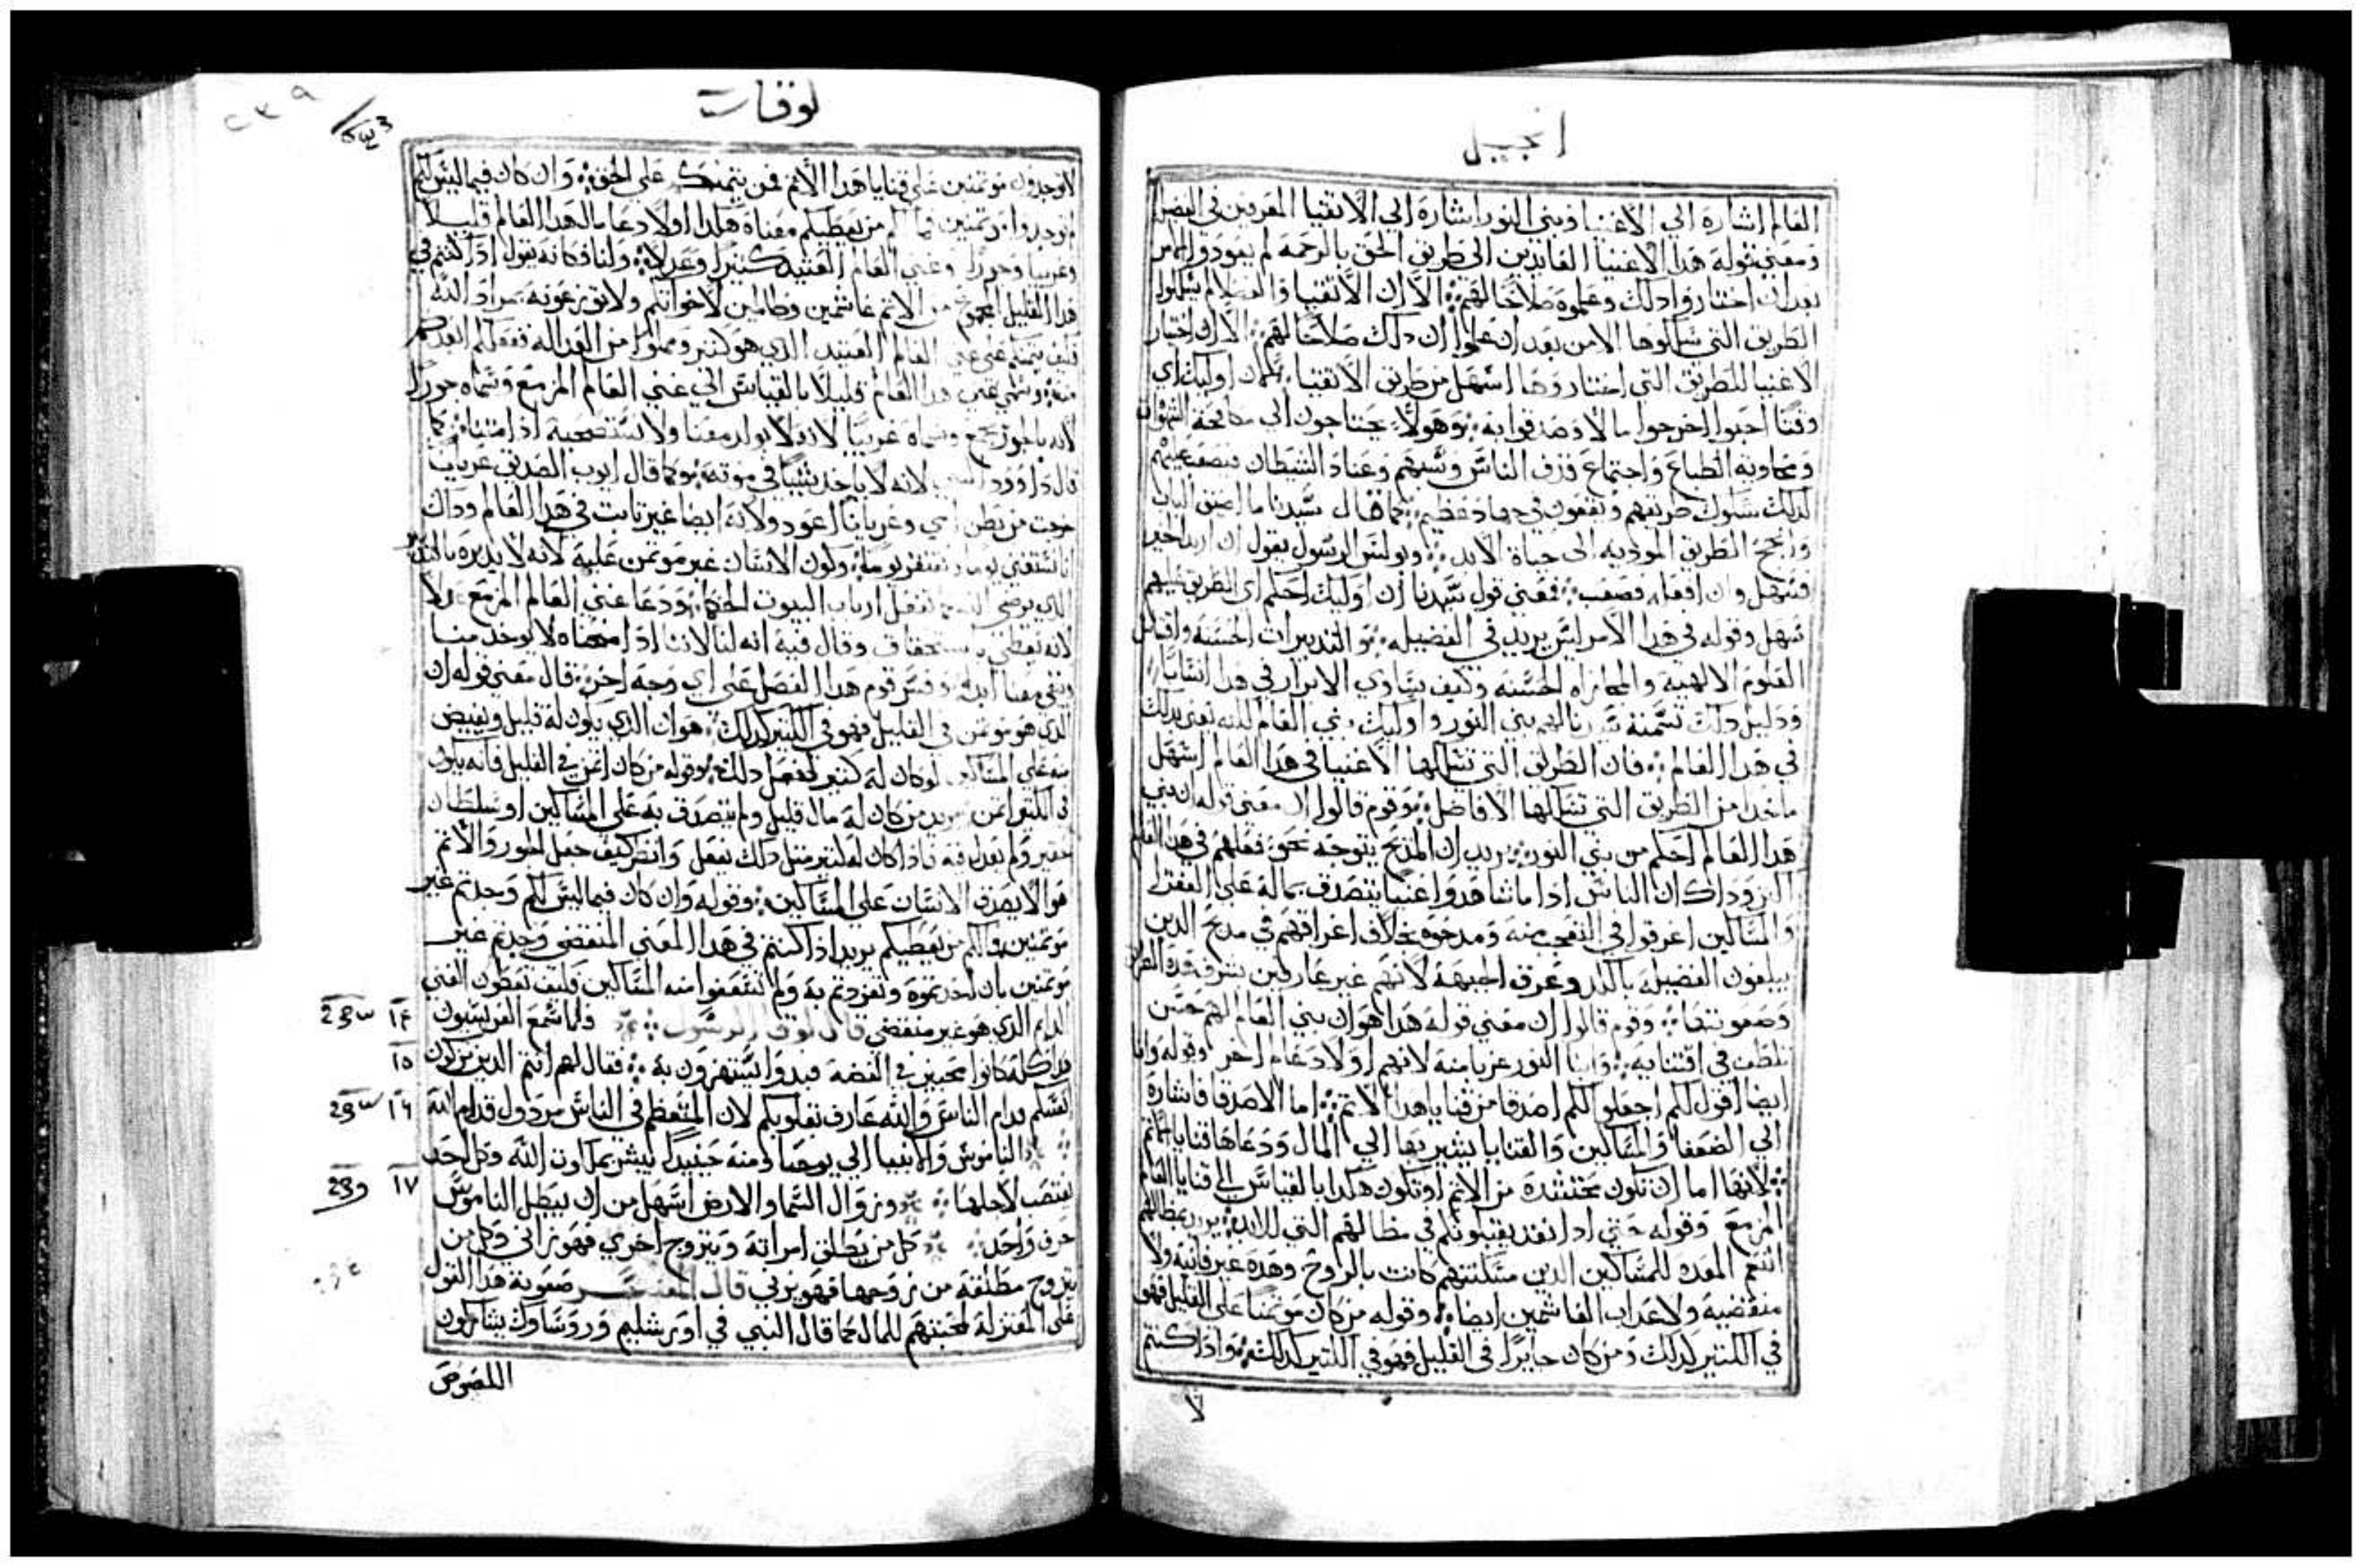 انجيل
العالم اشارة الي الاغنيا وبني النور اشارة الي الاتقيا المعرقين في الفضل
ومعني قوله هدا الاغنيا العايدين الي طريق الحق بالرحمه لم يعودوا الامر
بعد ان اختاروا دلك وعلموه صلاحًا لهم الا ان الاتقيا والفضلا لم يسلكوا
الطريق التي سلكوها الا من بعد ان علموا ان دلك صلاحًا لهم الا ان اختيار
الاغنيا للطريق التي اختاروها اسهل من طريق الاتقيا لان اوليك اي
وقتًا احبوا اخرجوا مالا وصدقوا به وهولا يحتاجون الي مكافحة الشهوات
ومجادبه الطباع واجتماع قرف الناس وسبهم وعناد الشيطان فيصعب عليهم
لدلك سلوك طريقهم ويقعون في جهاد عظيم كما قال سيدنا ما اضيق الباب
الطريق الموديه الي حياة الابد وبولس الرسول يقول ان اريد الخير
فيسهل وان افعله فيصعب فمعني قول سيدنا ان اوليك احكم اي الطريق عليهم
سهل وقوله في هدا الامر ليس يريد في الفضيله والتدبيرات الحسنه
العلوم الالهيه والمجازاه الحسنه وكيف يساوي الابرار في هدا
ودليل دلك تسمية سيدنا لهم بني النور واوليك بني العالم لكنه يعني بدلك
في هدا العالم فان الطريق التي تسلكها الاغنيا في هدا العالم اسهل
ماخدا من الطريق التي تسلكها الافاضل وقوم قالوا ان معني قوله ان بني
هدا العالم احكم من بني النور يريد ان المديح يتوجه نحو فعلهم في هدا العالم
اكثر وداك ان الناس ادا ما شاهدوا غنيا يتصدق بماله علي الفقرا
والمساكين اغرقوا في التعجب منه ومدحوه بخلاف اغراقهم في مديح الدين
يبلغون الفضيله بالكد وعرق الجبهه لانهم غير عارفين بشرف هده الطريق
وصعوبتها وقوم قالوا ان معني قوله هدا هو ان بني العالم لهم حسن
تلطف في اقتنايه وابنا النور عزبا منه لانهم اولاد عالم اخر وقوله وانا
ايضا اقول لكم اجعلوا لكم اصدقا من قنايا هدا الاتم اما الاصدقا فاشارة
الي الضعفا والمساكين والقنايا يشير بها الي المال ودعاها قنايا الاتم
لانها اما ان تكون محتشده من الاتم او تكون هكدا بالقياس الي قنايا العالم
المزمع وقوله حتي ادا نفد يقبلونكم في مظالهم التي للابد يريد بمظالهم
النعم المعده للمساكين الدين مسكنتهم كانت بالروح وهده غير فانيه ولا
منقضيه ولا عداب الغاشمين ايضا وقوله من كان موتمنا علي القليل فهو
في الكتير كدلك ومن كان جايرًا في القليل فهو في الكتير كدلك وادا كنتم
لا
لوقا
٢٣٩
لا توجدون موتمنين علي قنايا هدا الاتم فمن يتمنكم علي الحق وان كان فيما ليس لكم
لم توجدوا موتمنين فما لكم من يعطيكم معناه هكدا اولا دعا مال هدا العالم قليلا
وغريبا وجورًا وغني العالم العتيد كتيرا وعدلا ولنا فكانه يقول ادا كنتم في
هدا القليل المجموع من الاتم غاشمين وظالمين لاخواتكم ولا توزعونه بمراد الله
فكيف يتمنكم علي غني العالم العتيد الدي هو كتير ومملوا من العداله
منه وسمي غني هدا العالم قليلا بالقياس الي غني العالم المزمع وسماه جورًا
لانه بالجور يجمع وسماه غريبًا لانه لا يولد معنا ولا نستصحبه ادا متنا كما
قال داوود النبي لانه لا ياخد شيا في موته وكما قال ايوب الصديق عريان
خرجت من بطن امي وعريانا اعود ولانه ايضا غير تابت في هدا العالم وداك
انا نستغني يومًا ونفتقر يومًا وكون الانسان غير موتمن عليه لانه لا يدبره
الدي يرضي الله كما تفعل ارباب البيوت الحكما ودعا غني العالم المزمع عدلا
لانه يعطي باستحقاق وقال فيه انه لنا لاننا ادا لا يوخد منا
ويبقي معنا ابدا وفسر قوم هدا الفصل علي اي وجه اخر قال معني قوله ان
الدي هو موتمن في القليل فهو في الكتير كدلك هو ان الدي يكون له قليل ويفيض
منه علي المساكين لو كان له كتير لفعل دلك وقوله من كان اتمن في القليل فانه يكون
في الكتير اتمن يريد من كان له مال قليل ولم يتصدق به علي المساكين او سلطان
حقير ولم يعدل فيه فادا كان له كتير متل دلك يفعل وانظر كيف جعل الجور والاتم
هو الا يصدق الانسان علي المساكين وقوله وان كان فيما ليس لكم وجدتم غير
موتمنين فما لكم من يعطيكم يريد ادا كنتم في هدا المعني المنقضي وجدتم غير
موتمنين بان اخدتموه وتفردتم به ولم تنفعوا منه المساكين فكيف تعطون الغني
الدايم الدي هو غير منقضي قال لوقا الرسول فلما سمع الفريسيون ١٤
هدا كله كانوا محبين في الفضه فبدوا يستهزون به فقال لهم انتم الدين تزكون ١٥
نفسكم قدام الناس والله عارف بقلوبكم لان المتعظم في الناس مردول قدام الله ١٦
الناموس والانبيا الي يوحنا ومنه حينيدا يبشر بملكوت الله وكل احد
يغتصب لاجلها وزوال السما والارض اسهل من ان يبطل الناموس ١٧
حرف واحد كل من يطلق امراته ويتزوج اخري فهو زاني وكل من
تزوج مطلقة من زوجها فهو يزني قال المفسر صعوبة هدا القول
علي المعتزلة لمحبتهم للمال كما قال النبي في اورشليم وروساوك يشاركون
اللصوص